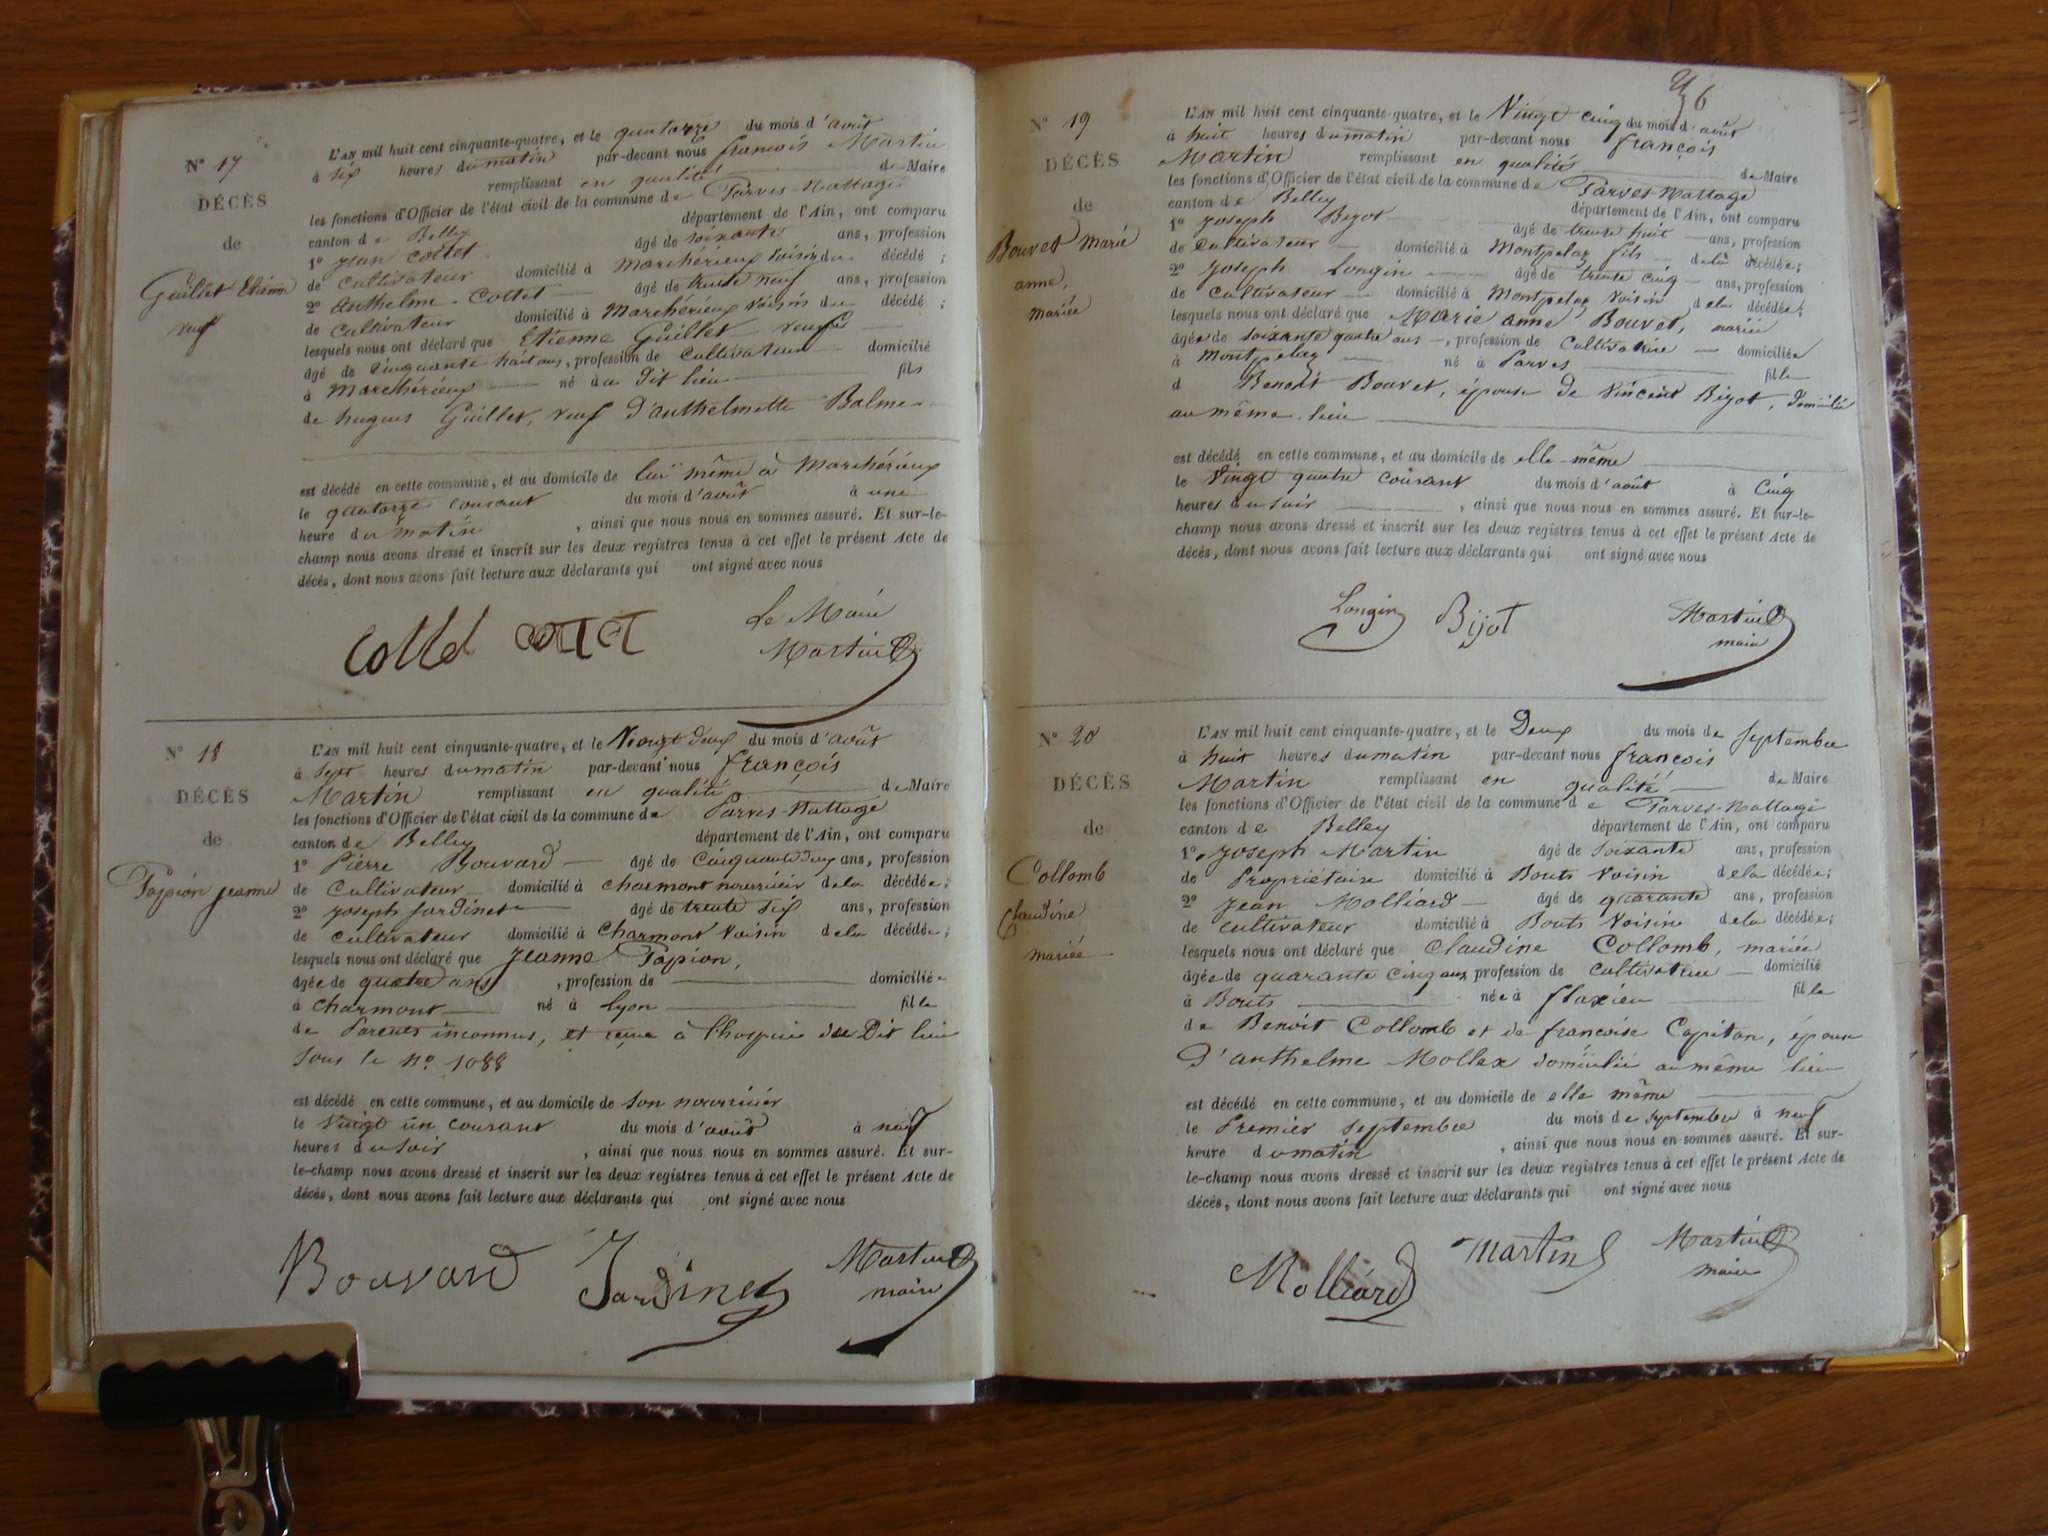 N° 17
DÉCÈS
de
Guillet Etienne
veuf
L'AN mil huit cent cinquante-quatre, et le quatorze du mois d'août
à six heures du matin par-devant nous francois Martin
remplissant en qualité de Maire
les fonctions d'Officier de l'état civil de la commune de Parves-Nattage
canton de Belley département de l'Ain, ont comparu
1° Jean Cottet âgé de soixante ans, profession
de cultivateur domicilié à Marchérieux voisin du décédé ;
2° Anthelme Cottet âgé de trente neuf ans, profession
de cultivateur domicilié à Marchérieux voisin du décédé ;
lesquels nous ont déclaré que Etienne Guillet veuf
âgé de cinquante huit ans, profession de cultivateur domicilié
à Marchérieux né au dit lieu fils
de hugues Guillet, veuf d'anthelmette Balme
est décédé en cette commune, et au domicile de lui même à Marchérieux
le quatorze courant du mois d'août à une
heure du matin , ainsi que nous nous en sommes assuré. Et sur-le-
champ nous avons dressé et inscrit sur les deux registres tenus à cet effet le présent Acte de
décès, dont nous avons fait lecture aux déclarants qui ont signé avec nous
Le Maire
Cottet Cottet Martin
N° 18
DÉCÈS
de
Papion Jeanne
L'AN mil huit cent cinquante-quatre, et le Vingt deux du mois d'août
à sept heures du matin par-devant nous françois
Martin remplissant en qualité de Maire
les fonctions d'Officier de l'état civil de la commune de Parves-Nattage
canton de Belley département de l'Ain, ont comparu
1° Pierre Bouvard âgé de cinquante deux ans, profession
de cultivateur domicilié à charmont nourricier de la décédée ;
2° Joseph Jardinet âgé de trente six ans, profession
de cultivateur domicilié à Charmont voisin de la décédée ;
lesquels nous ont déclaré que Jeanne Papion,
âgée de quatre ans , profession de domiciliée
à Charmont né à Lyon fille
de Parents inconnus, et reçue à l'hospice du Dit lieu
sous le N° 1088
est décédé en cette commune, et au domicile de son nourricier
le vingt un courant du mois d'août à neuf
heures du soir , ainsi que nous nous en sommes assuré. Et sur-
le-champ nous avons dressé et inscrit sur les deux registres tenus à cet effet le présent Acte de
décès, dont nous avons fait lecture aux déclarants qui ont signé avec nous
Bouvard Jardinet Martin
maire
N° 19
DÉCÈS
de
Bouvet Marie
anne,
mariée
L'AN mil huit cent cinquante-quatre, et le Vingt cinq du mois d'août
à huit heures du matin par-devant nous françois
Martin remplissant en qualité de Maire
les fonctions d'Officier de l'état civil de la commune de Parves-Nattage
canton de Belley département de l'Ain, ont comparu
1° Joseph Bizot âgé de trente huit ans, profession
de cultivateur domicilié à Montpelaz fils de la décédée ;
2° Joseph Longin âgé de trente cinq ans, profession
de cultivateur domicilié à Montpelaz voisin de la décédée ;
lesquels nous ont déclaré que Marie anne Bouvet, mariée
âgée de soixante quatre ans, profession de cultivatrice domiciliée
à Montpelaz né à Parves fille
d Benoit Bouvet, épouse de vincent Bizot, domicilié
au même lieu
est décédé en cette commune, et au domicile de elle-même
le vingt quatre courant du mois d'août à cinq
heures du soir , ainsi que nous nous en sommes assuré. Et sur-le-
champ nous avons dressé et inscrit sur les deux registres tenus à cet effet le présent Acte de
décès, dont nous avons fait lecture aux déclarants qui ont signé avec nous
Longin Bijot Martin
maire
N° 20
DÉCÈS
de
Collomb
Claudine
mariée
L'AN mil huit cent cinquante-quatre, et le Deux du mois de septembre
à huit heures du matin par-devant nous francois
Martin remplissant en qualité de Maire
les fonctions d'Officier de l'état civil de la commune de Parves-Nattage
canton de Belley département de l'Ain, ont comparu
1° Joseph Martin âgé de soixante ans, profession
de Propriétaire domicilié à Bouts voisin de la décédée ;
2° Jean Molliard âgé de quarante ans, profession
de cultivateur domicilié à Bouts voisin de la décédée ;
lesquels nous ont déclaré que Claudine Collomb, mariée
âgée de quarante cinq ans profession de cultivatrice domicilié
à Bouts née à flaxieu fille
de Benoit Collomb et de francoise Capitan, épouse
d'anthelme Mollex domicilié au même lieu
est décédé en cette commune, et au domicile de elle même
le Premier septembre du mois de septembre à neuf
heure du matin , ainsi que nous nous en sommes assuré. Et sur-
le-champ nous avons dressé et inscrit sur les deux registres tenus à cet effet le présent Acte de
décès, dont nous avons fait lecture aux déclarants qui ont signé avec nous
Molliard Martin Martin
maire